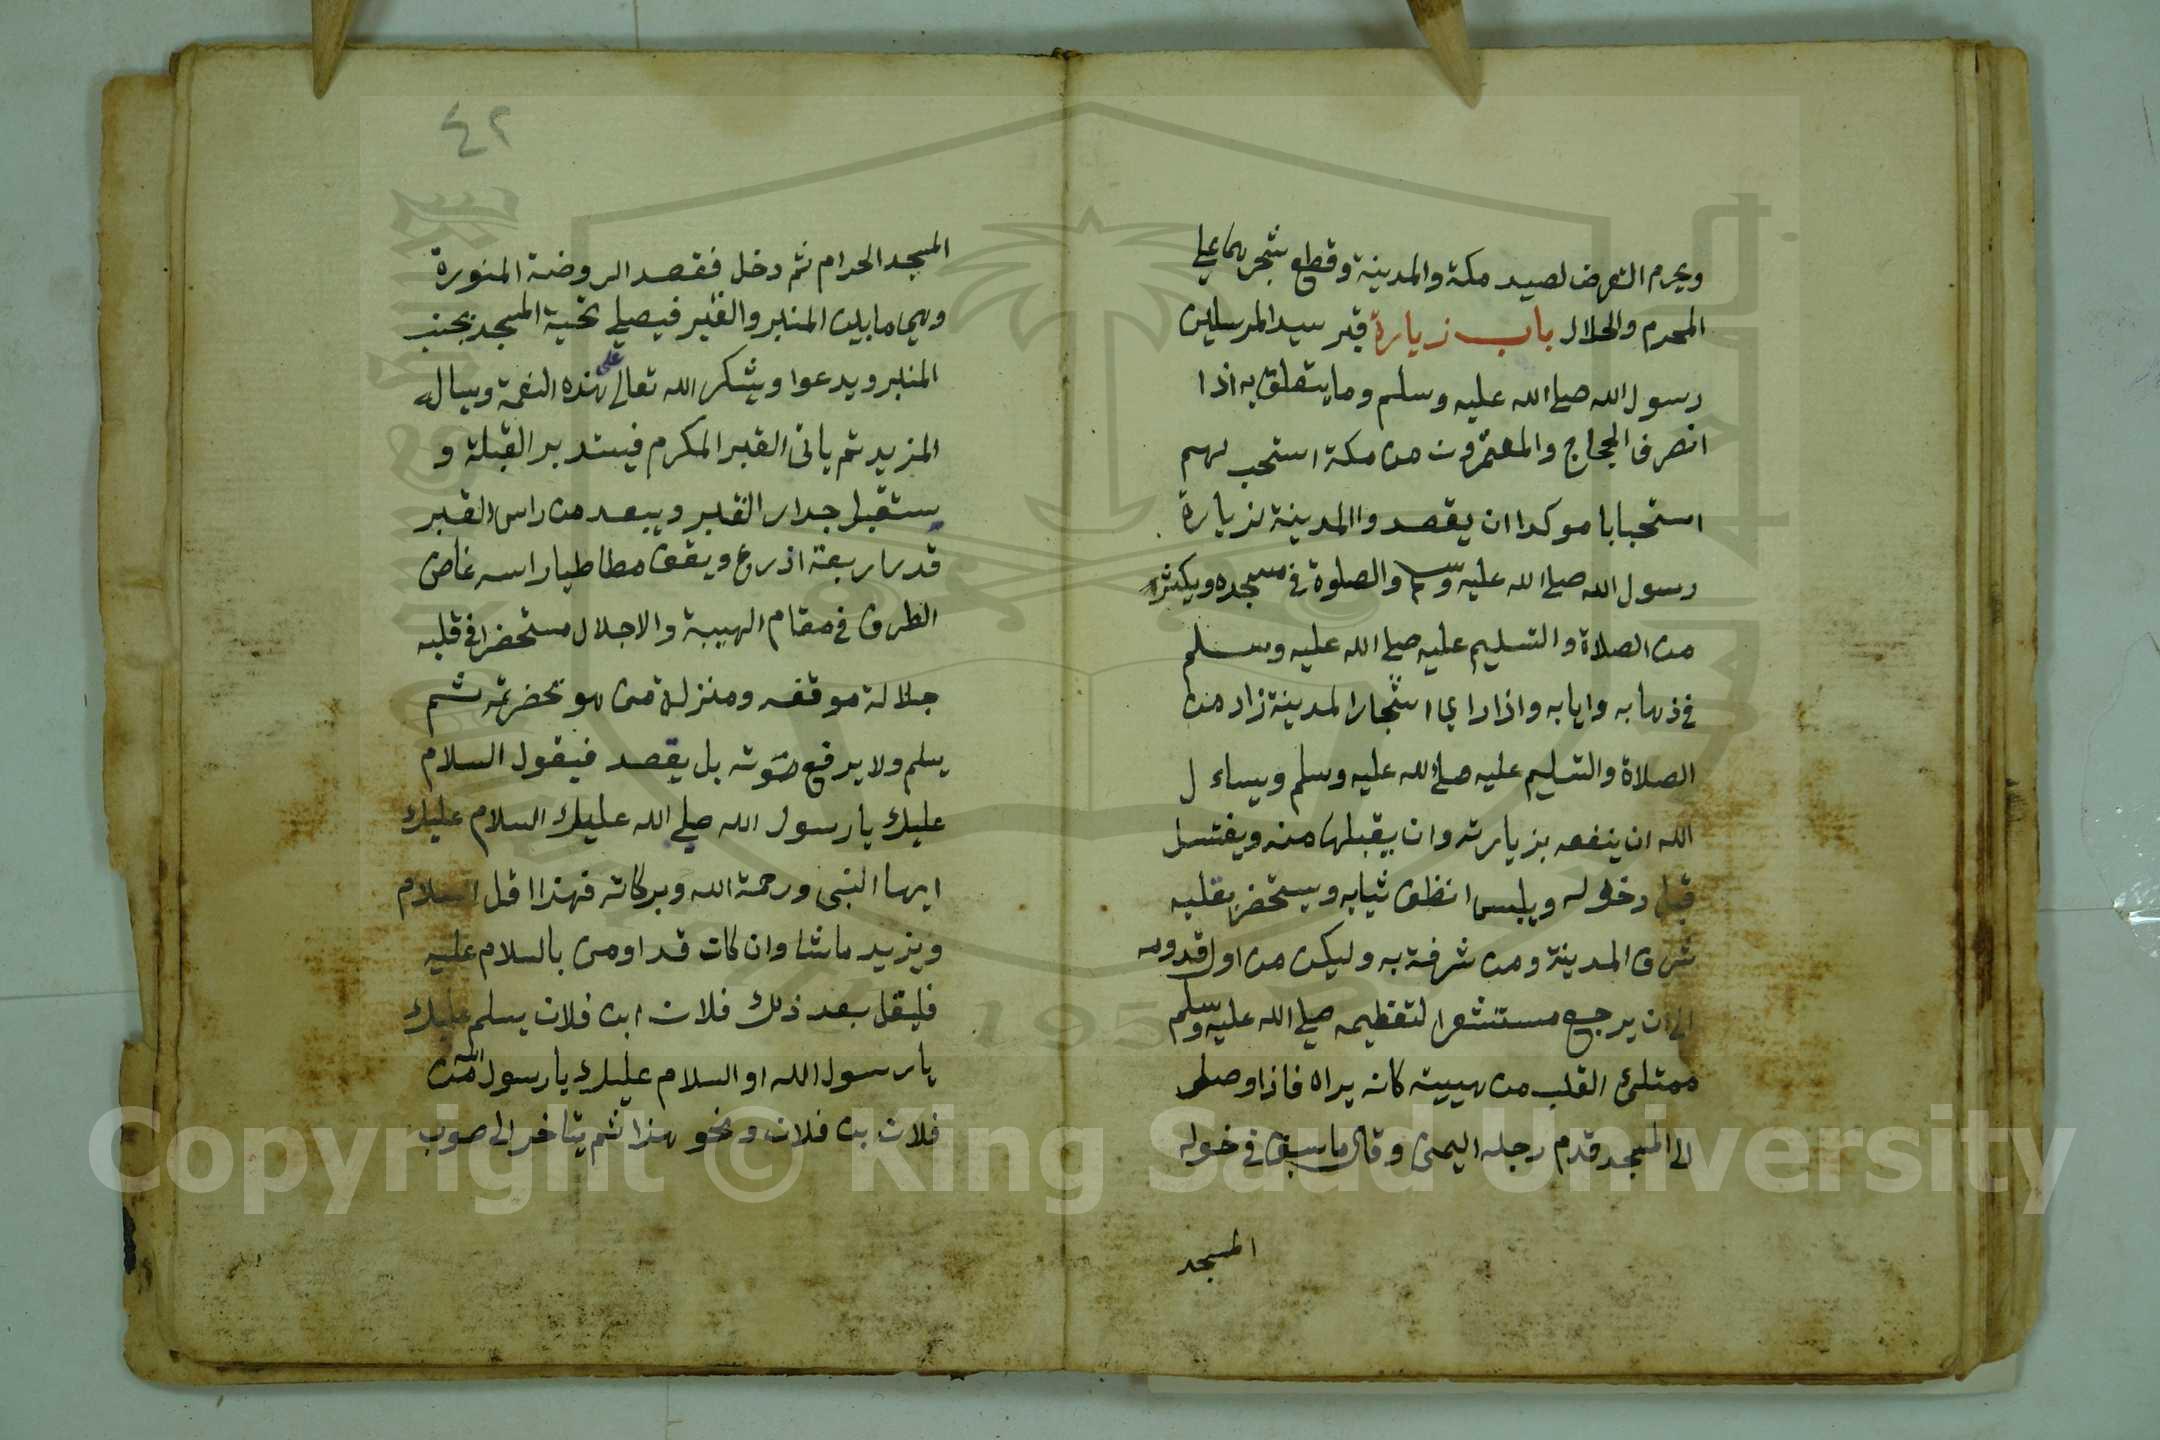 ويحرم التعرض لصيد مكة والمدينة وقطع شجرهما علي
المحرم والحلال باب زيارة قبر سيد المرسلين
رسول الله صلي الله عليه وسلم وما يتعلق به اذا
انصرف الحجاج والمعتمرون من مكة استحب لهم
استحبابا موكدا ان يقصدوا المدينة لزيارة
رسول الله صلي الله عليه وسلم والصلوة في مسجده ويكثر
من الصلاة والتسليم عليه صلي الله عليه وسلم
في ذهابه وايابه واذا راي اشجار المدينة زاد من
الصلاة والتسليم عليه صلي الله عليه وسلم ويساءل
الله ان ينفعه بزيارته وان يقبلها منه ويغتسل
قبل دخوله ويلبس انظف ثيابه ويستحضر بقلبه
شرف المدينة ومن شرفة به وليكن من اول قدومه
الي ان يرجع مستشعرا لتعظيمه صلي الله عليه وسلم
ممتلئ القلب من هيبته كانه يراه فاذا وصل
الي المسجد قدم رجله اليمني وقال ما سبق في خوله
المسجد
٤٢
المسجد الحرام ثم دخل فقصد الروضة المنورة
وهي ما بين المنبر والقبر فيصلي تحية المسجد بجنب
المنبر ويدعوا ويشكر الله تعالي على هذه النعمة ويساله
المزيد ثم ياتي القبر المكرم فيستدبر القبلة و
يستقبل جدار القبر ويبعد من راس القبر
قدر اربعة اذرع ويقف مطاطيا راسه غاض
الطرف في مقام الهيبة والاجلال مستحضرا في قلبه
جلالة موقفه ومنزلة من هو بحضرته ثم
يسلم ولا يرفع صوته بل يقصد فيقول السلام
عليك يا رسول الله صلي الله عليك السلام عليك
ايها النبي ورحمة الله وبركاته فهذا اقل السلام
ويزيد ما شا وان كان قد اومى بالسلام عليه
فليقل بعد ذلك فلان ابن فلان يسلم عليك
يا رسول الله او السلام عليك يا رسول الله من
فلان بن فلان ونحو هذا ثم يتاخر الي صوب
Copyright © King Saud University
1957